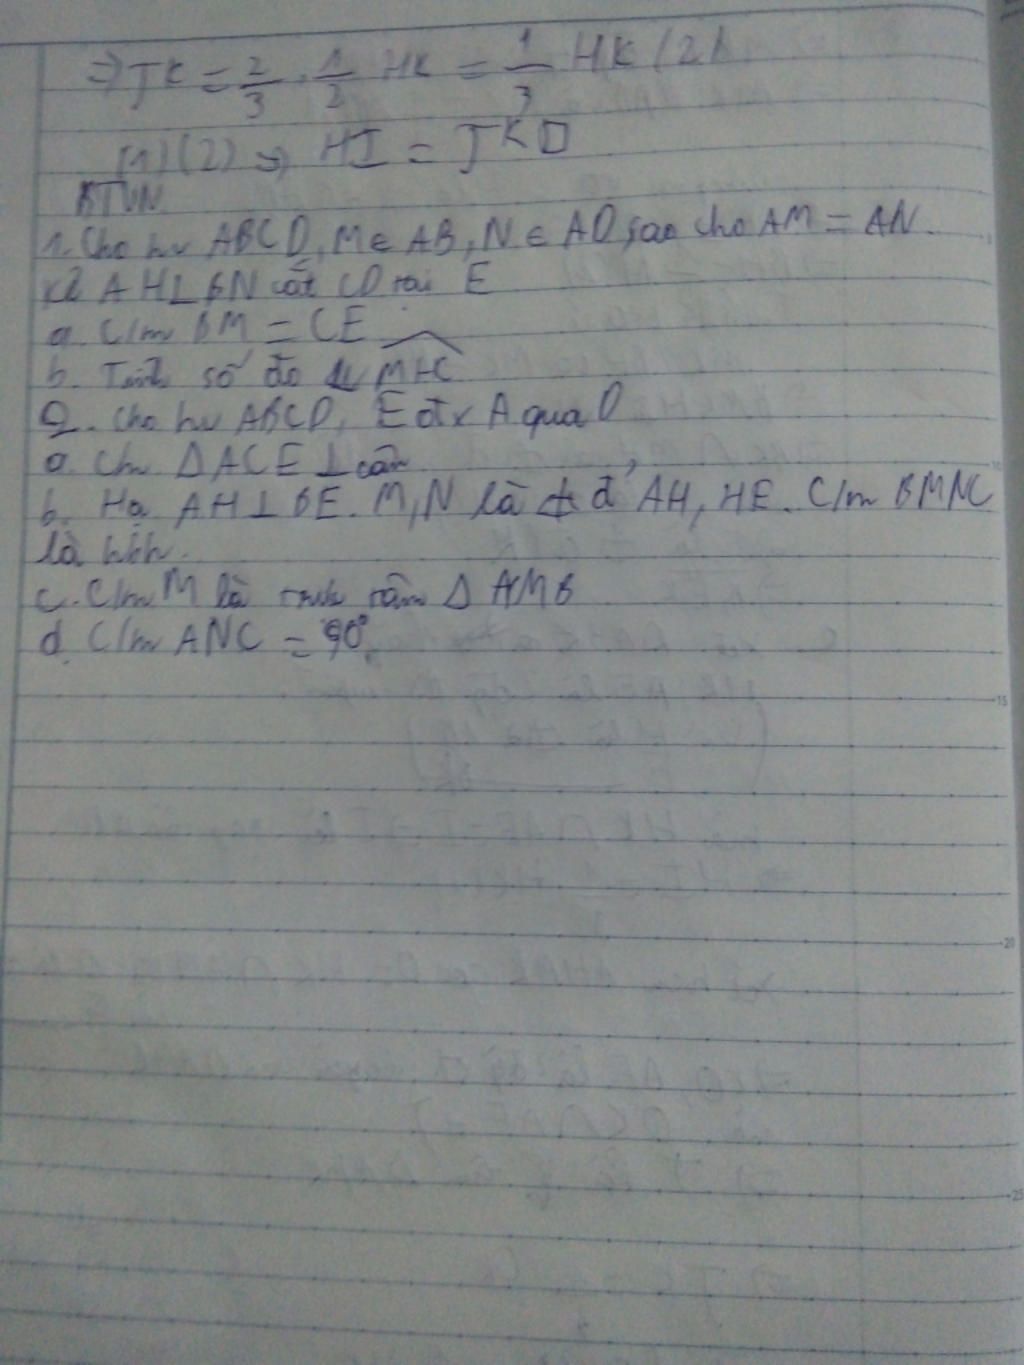 ⇒ JK = 2/3 . 1/2 HK = 1/3 HK (2)
(1)(2) ⇒ HI = JK □
BTVN
1. Cho hv ABCD, M ∈ AB, N ∈ AD sao cho AM = AN.
Kẻ AH ⊥ BN cắt CD tại E
a. C/m BM = CE
b. Tính số đo MHC
2. Cho hv ABCD, E đx A qua D
a. Cm Δ ACE ⊥ cân
b. Hạ AH ⊥ BE. M, N là tđ AH, HE. C/m BMNC
là hbh.
c. C/m M là trực tâm Δ ANB
d. C/m ANC = 90°
15
20
25